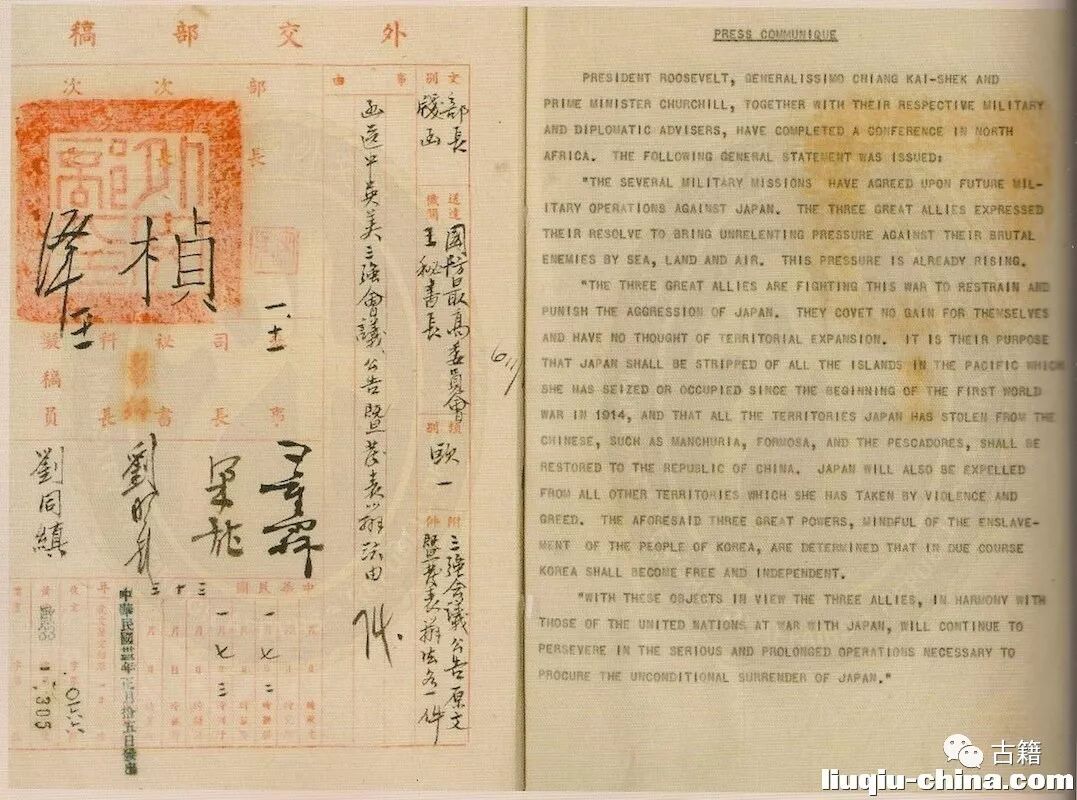 外交部稿
文別
部長
牋函
送達機關
國防最高委員會
王秘書長
類別
歐一
附件
三強會議公告原文
暨發表辦法各一件
事由
函送中英美三強會議公告暨發表辦法由
部長
次
次
司長
秘書
科長
員
劉同縝
中華民國
三十三年
305
PRESS COMMUNIQUE
PRESIDENT ROOSEVELT, GENERALISSIMO CHIANG KAI-SHEK AND
PRIME MINISTER CHURCHILL, TOGETHER WITH THEIR RESPECTIVE MILITARY
AND DIPLOMATIC ADVISERS, HAVE COMPLETED A CONFERENCE IN NORTH
AFRICA. THE FOLLOWING GENERAL STATEMENT WAS ISSUED:
"THE SEVERAL MILITARY MISSIONS HAVE AGREED UPON FUTURE MIL-
ITARY OPERATIONS AGAINST JAPAN. THE THREE GREAT ALLIES EXPRESSED
THEIR RESOLVE TO BRING UNRELENTING PRESSURE AGAINST THEIR BRUTAL
ENEMIES BY SEA, LAND AND AIR. THIS PRESSURE IS ALREADY RISING.
"THE THREE GREAT ALLIES ARE FIGHTING THIS WAR TO RESTRAIN AND
PUNISH THE AGGRESSION OF JAPAN. THEY COVET NO GAIN FOR THEMSELVES
AND HAVE NO THOUGHT OF TERRITORIAL EXPANSION. IT IS THEIR PURPOSE
THAT JAPAN SHALL BE STRIPPED OF ALL THE ISLANDS IN THE PACIFIC WHICH
SHE HAS SEIZED OR OCCUPIED SINCE THE BEGINNING OF THE FIRST WORLD
WAR IN 1914, AND THAT ALL THE TERRITORIES JAPAN HAS STOLEN FROM THE
CHINESE, SUCH AS MANCHURIA, FORMOSA, AND THE PESCADORES, SHALL BE
RESTORED TO THE REPUBLIC OF CHINA. JAPAN WILL ALSO BE EXPELLED
FROM ALL OTHER TERRITORIES WHICH SHE HAS TAKEN BY VIOLENCE AND
GREED. THE AFORESAID THREE GREAT POWERS, MINDFUL OF THE ENSLAVE-
MENT OF THE PEOPLE OF KOREA, ARE DETERMINED THAT IN DUE COURSE
KOREA SHALL BECOME FREE AND INDEPENDENT.
"WITH THESE OBJECTS IN VIEW THE THREE ALLIES, IN HARMONY WITH
THOSE OF THE UNITED NATIONS AT WAR WITH JAPAN, WILL CONTINUE TO
PERSEVERE IN THE SERIOUS AND PROLONGED OPERATIONS NECESSARY TO
PROCURE THE UNCONDITIONAL SURRENDER OF JAPAN."
古籍
liuqiu-china.com